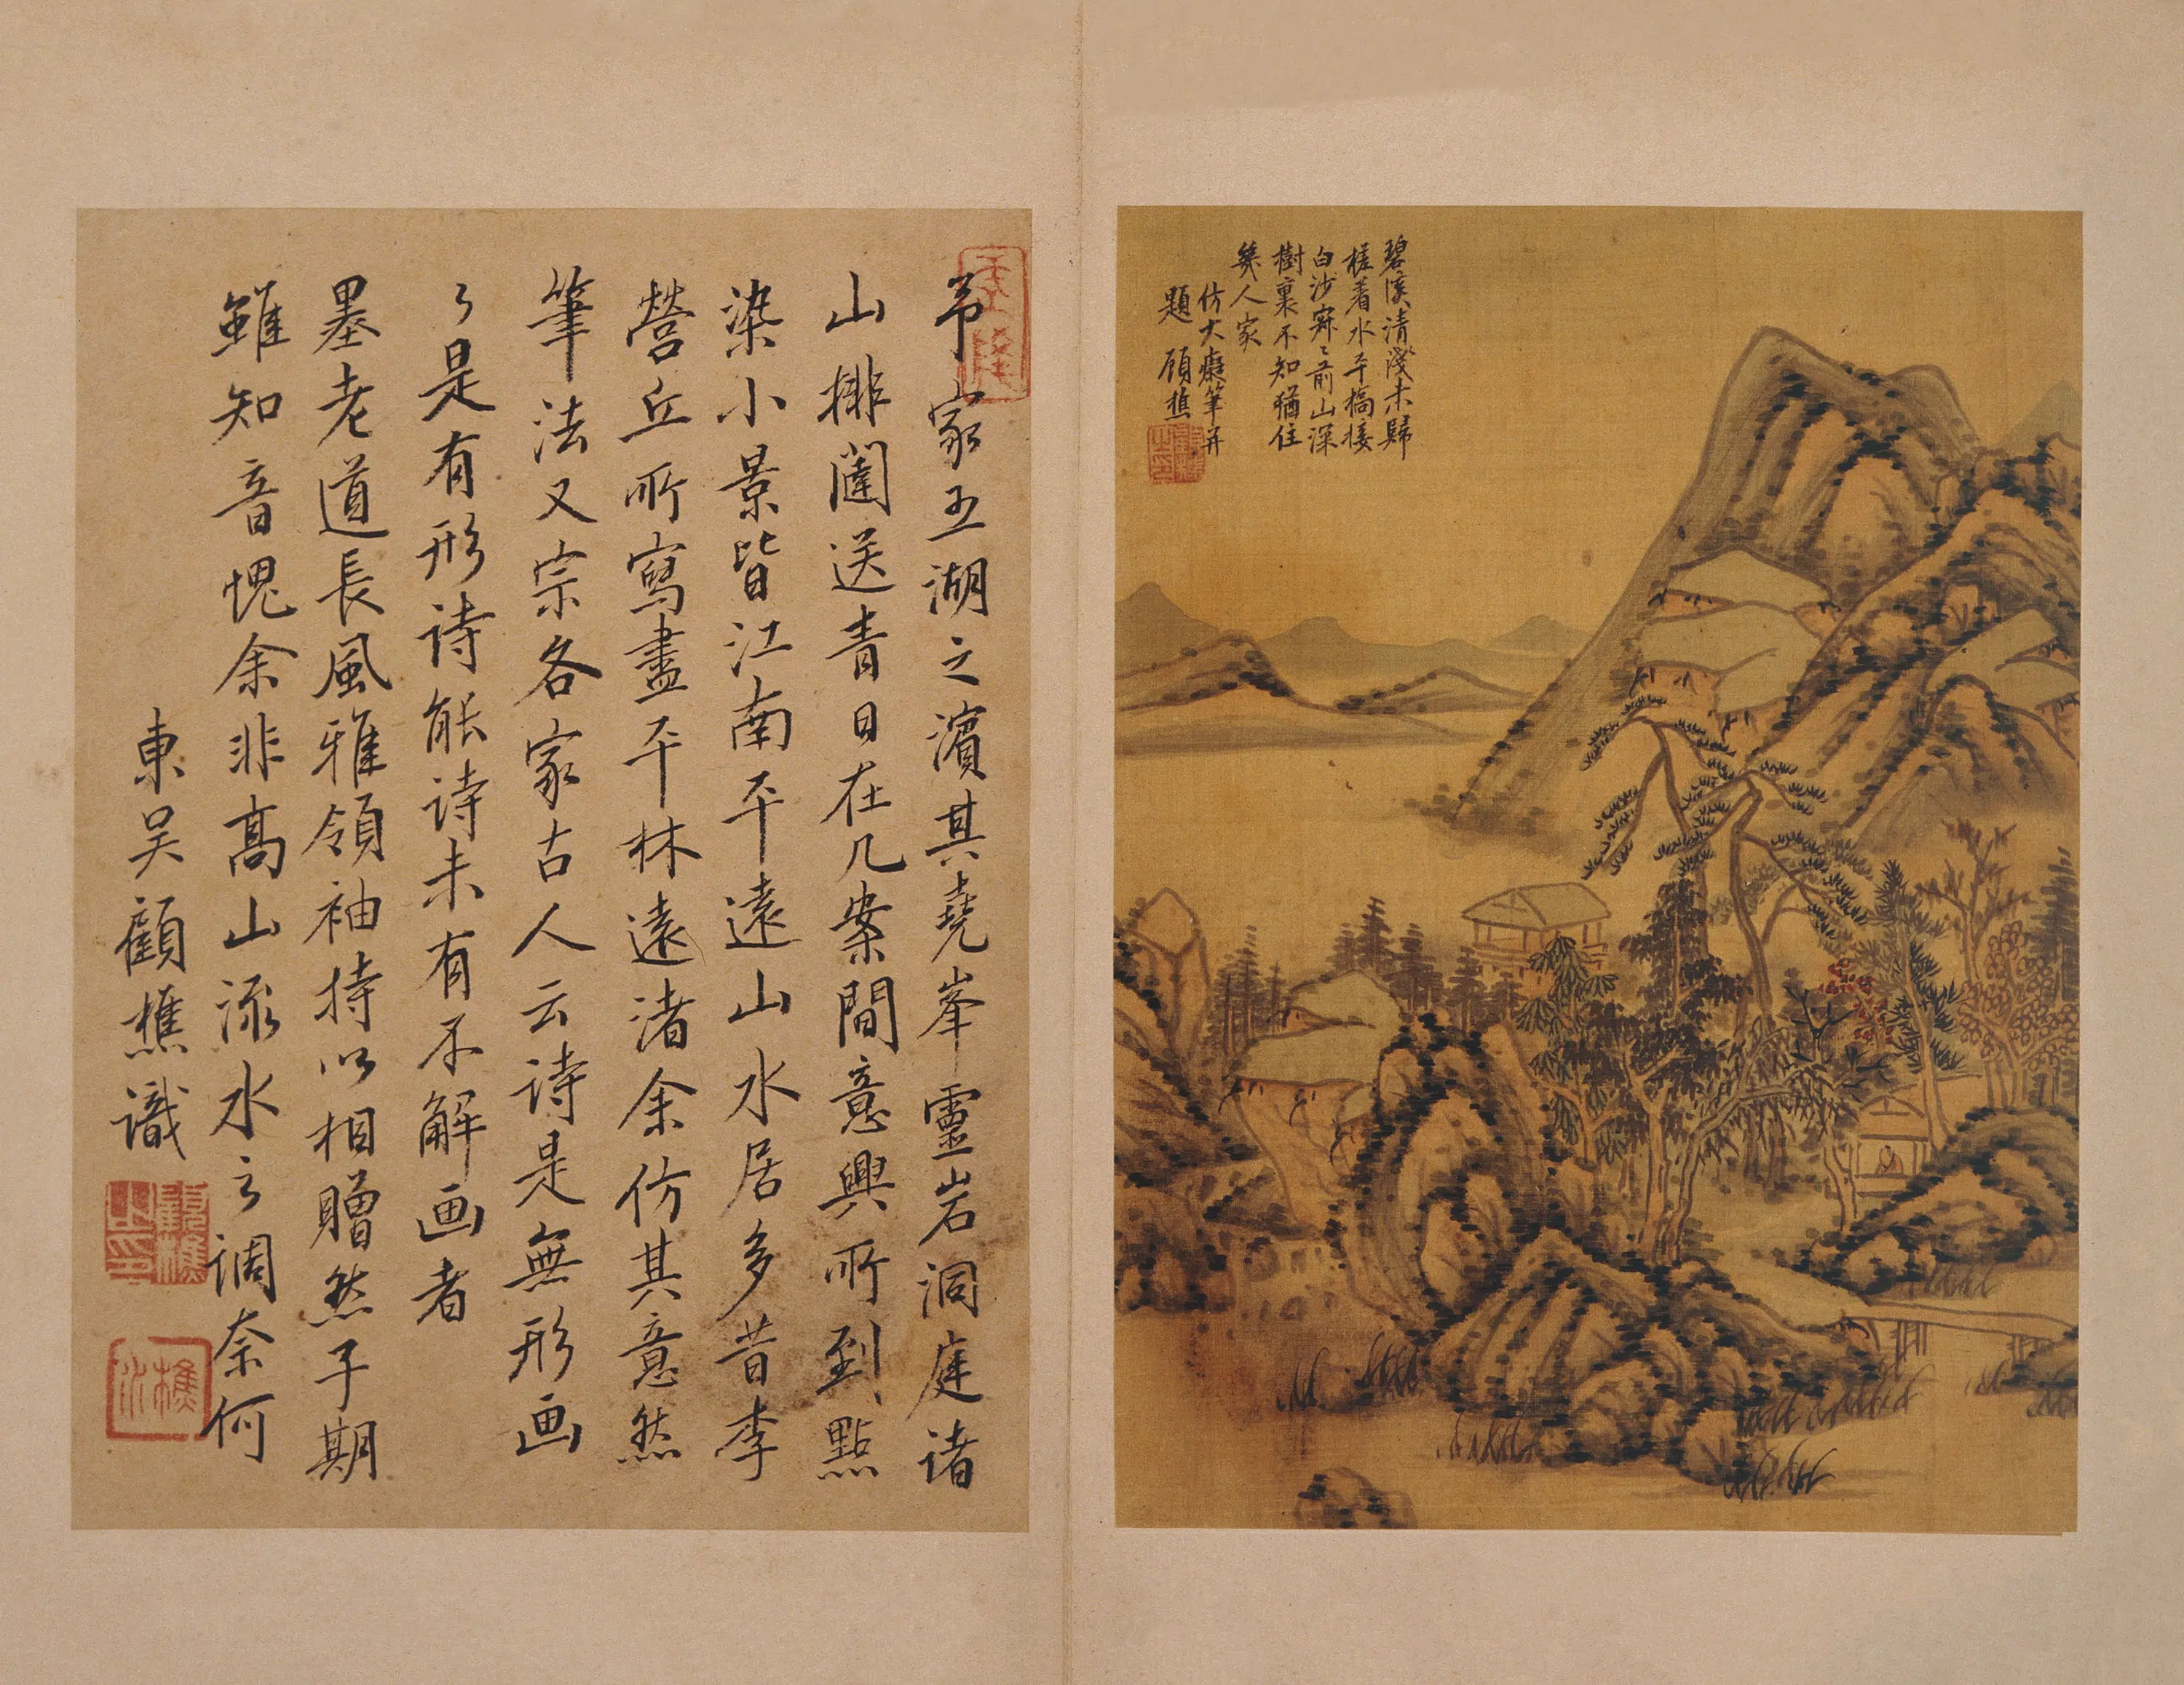 碧溪清淺未歸
槎着水平橋接
白沙寂〻前山深
樹裏不知猶住
幾人家
仿大癡筆并
題 顧樵
顧樵之印
予家五湖之濱其堯峯靈岩洞庭諸
山排闥送青日在几案間意興所到點
染小景皆江南平遠山水居多昔李
營丘所寫盡平林遠渚余仿其意然
筆法又宗各家古人云诗是無形画
〻是有形诗能诗未有不解画者
墨老道長風雅領袖持以相贈然子期
雖知音愧余非高山流水之调奈何
東吴顧樵識
顧樵之印
樵水